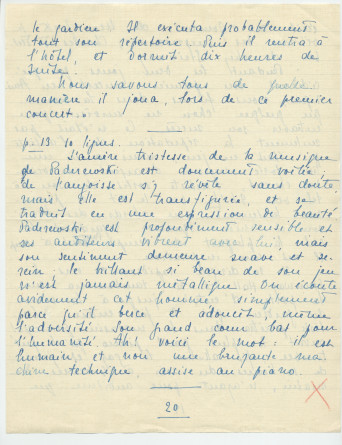 le gardien. Il exécuta probablement
tout son répertoire puis il rentra à
l'hôtel, et dormit dix heures de
suite.
Nous savons tous de quelle
manière il joua, lors de ce premier
concert...
p. 13. 10 lignes.
L'amère tristesse de la musique
de Paderewski est doucement voilée,
de l'angoisse s'y révèle sans doute
mais elle est transfigurée, et se
traduit en une expression de beauté
Paderewski est profondément sensible et
ses auditeurs vibrent avec lui, mais
son sentiment demeure suave et se-
rein; le brillant si beau de son jeu
n'est jamais métallique. On écoute
avidement cet homme simplement
parce qu'il berce et adoucit, même
l'adversité. Son grand cœur bat pour
l'humanité. Ah! voici le mot: il est
humain et non une bruyante ma
chine technique, assise au piano.
20